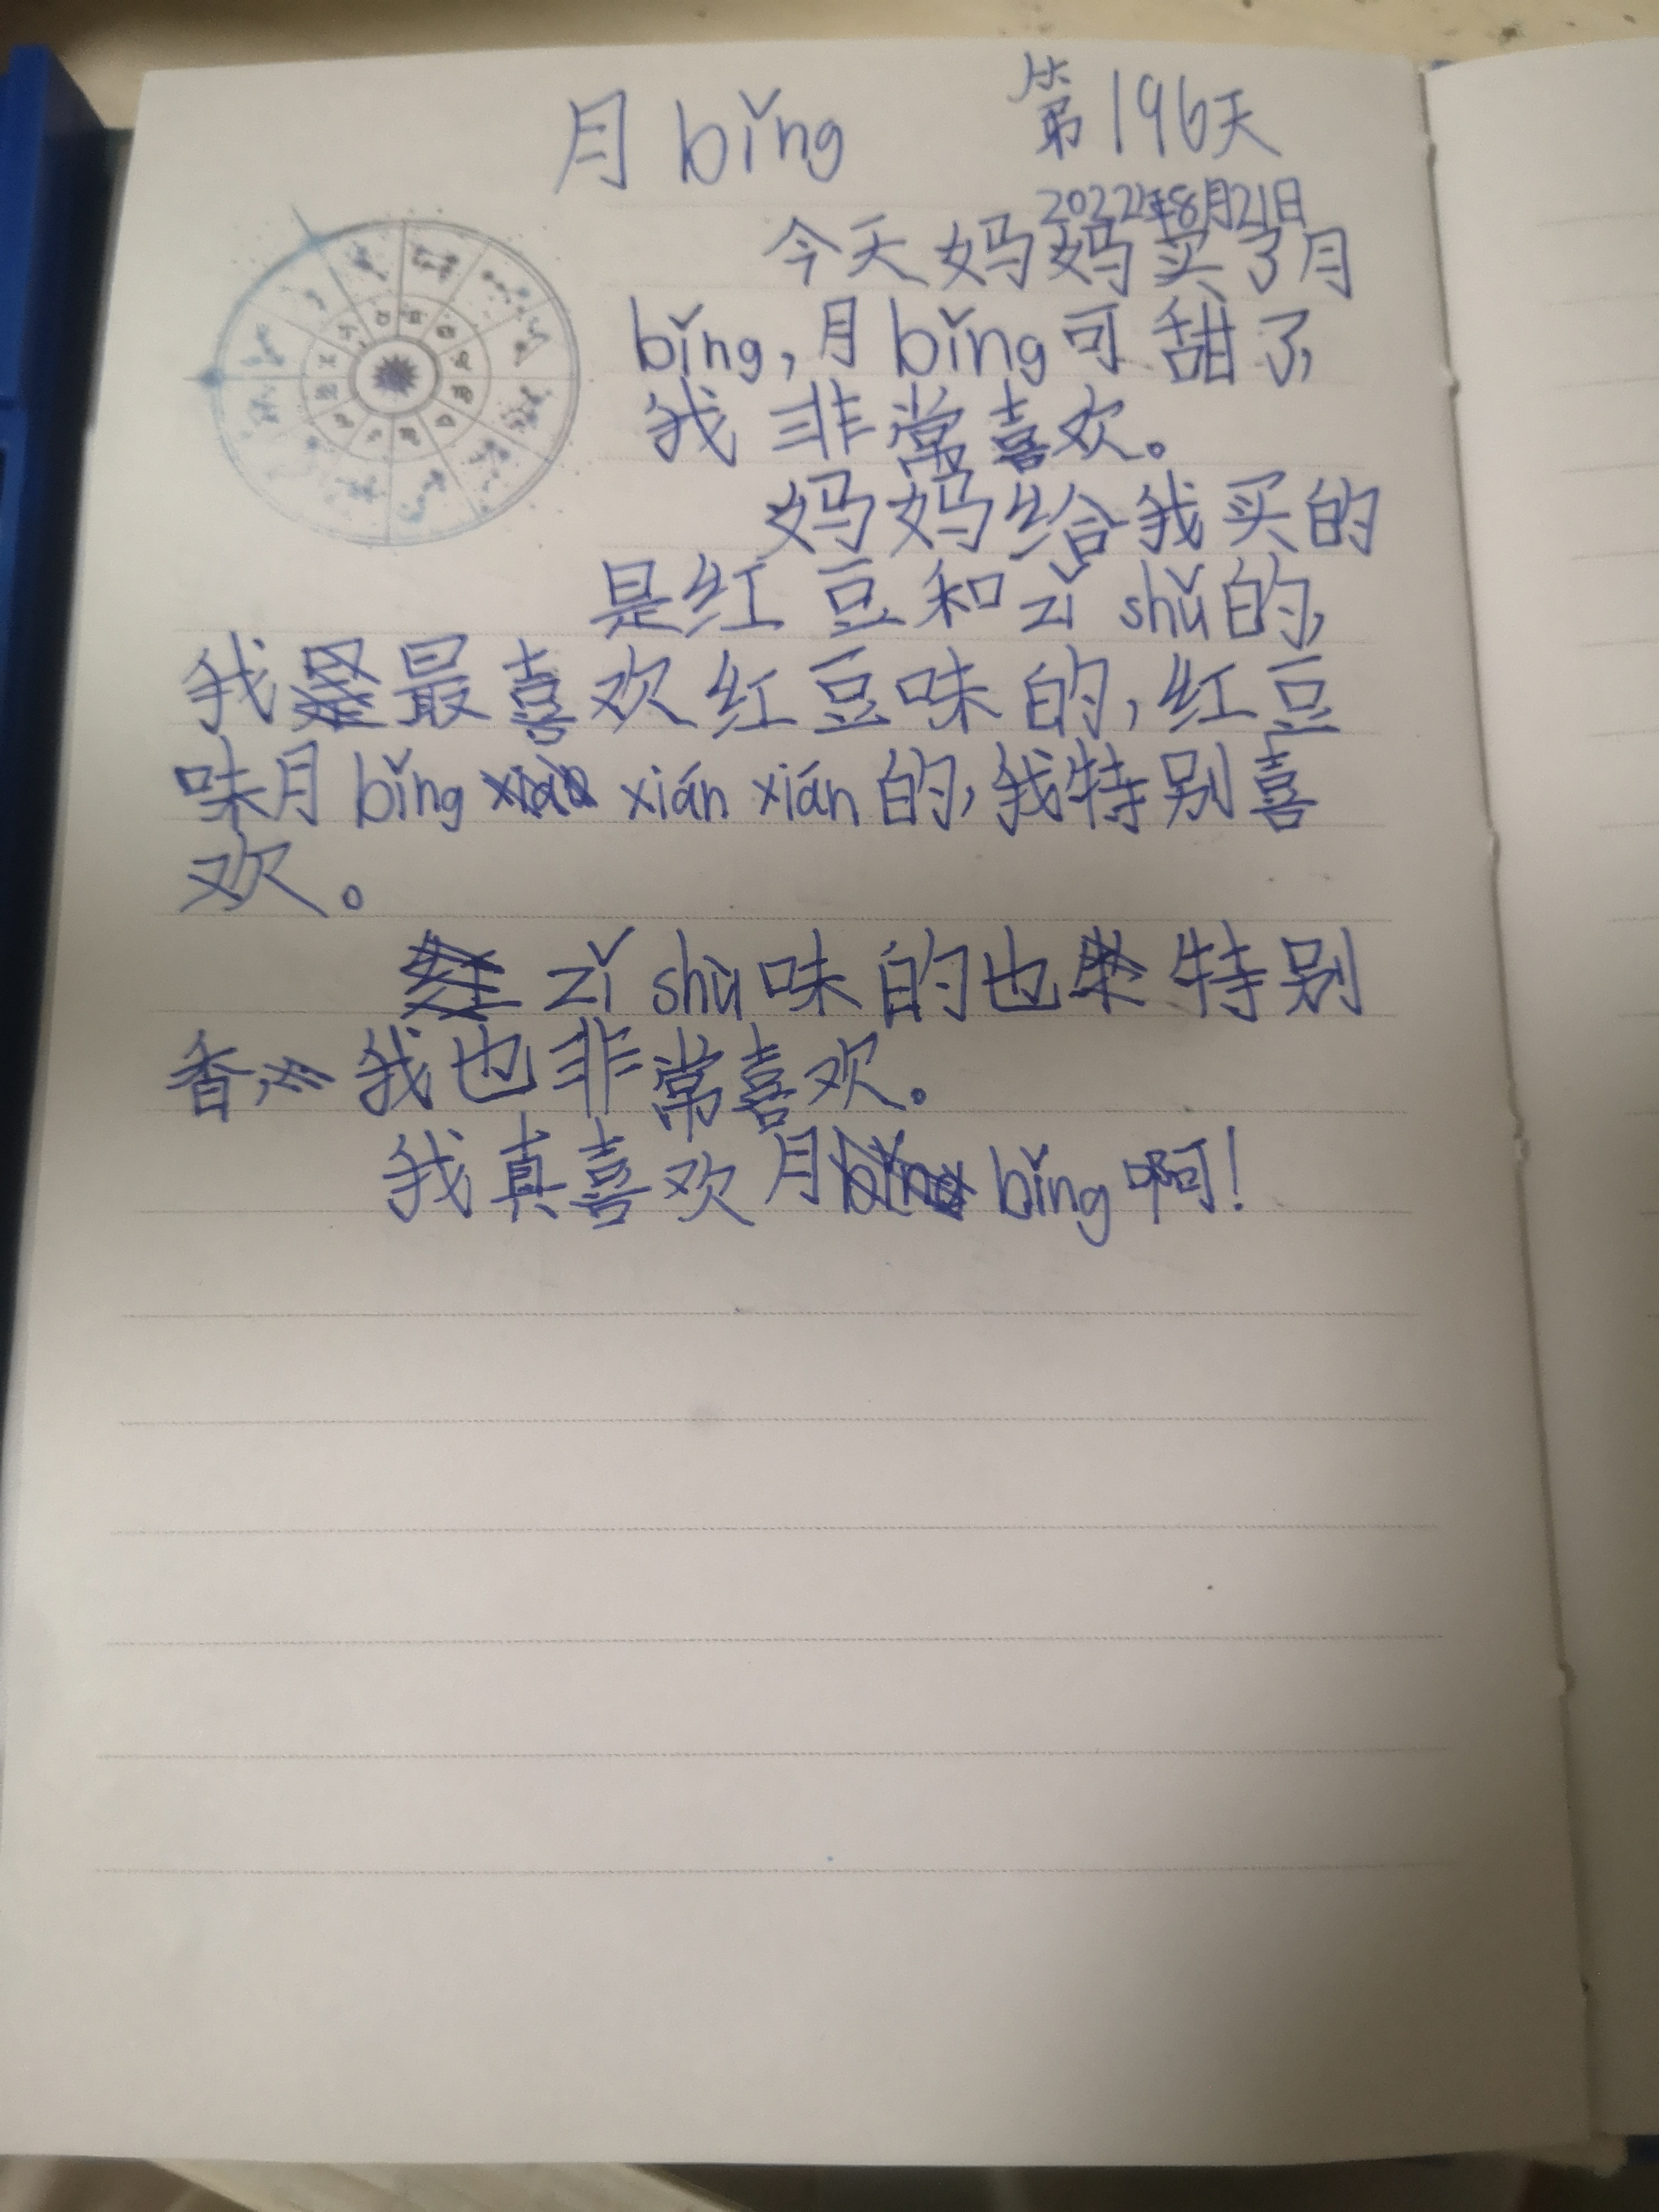 月bǐng 第196天
2022年8月21日
今天妈妈买了月
bǐng,月bǐng可甜了,
我非常喜欢。
妈妈给我买的
是红豆和zǐ shǔ的,
我最喜欢红豆味的,红豆
味月bǐng xián xián的,我特别喜
欢。
zǐ shù味的也特别
香,我也非常喜欢。
我真喜欢月bǐng啊!